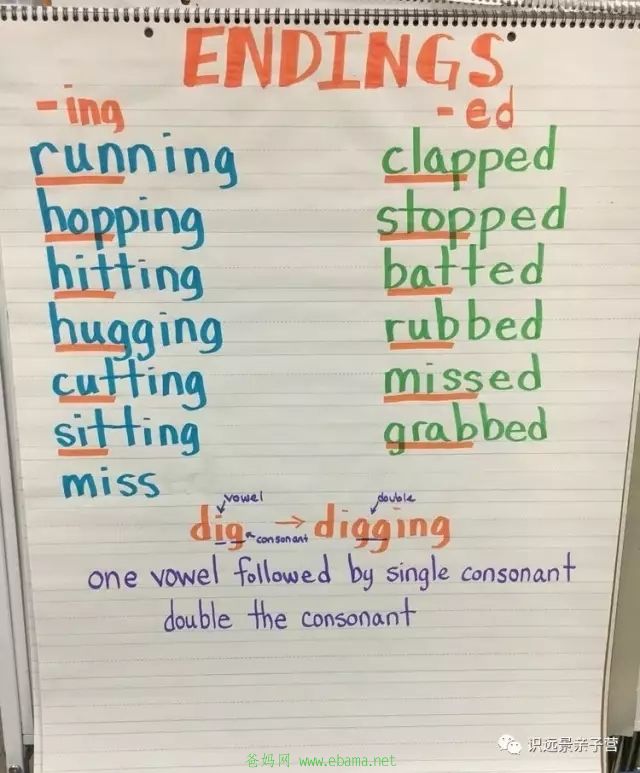 ENDINGS
-ing -ed
running clapped
hopping stopped
hitting batted
hugging rubbed
cutting missed
sitting grabbed
miss
vowel double
dig → digging
consonant
one vowel followed by single consonant
double the consonant
识远景亲子营
爸妈网 www.ebama.net